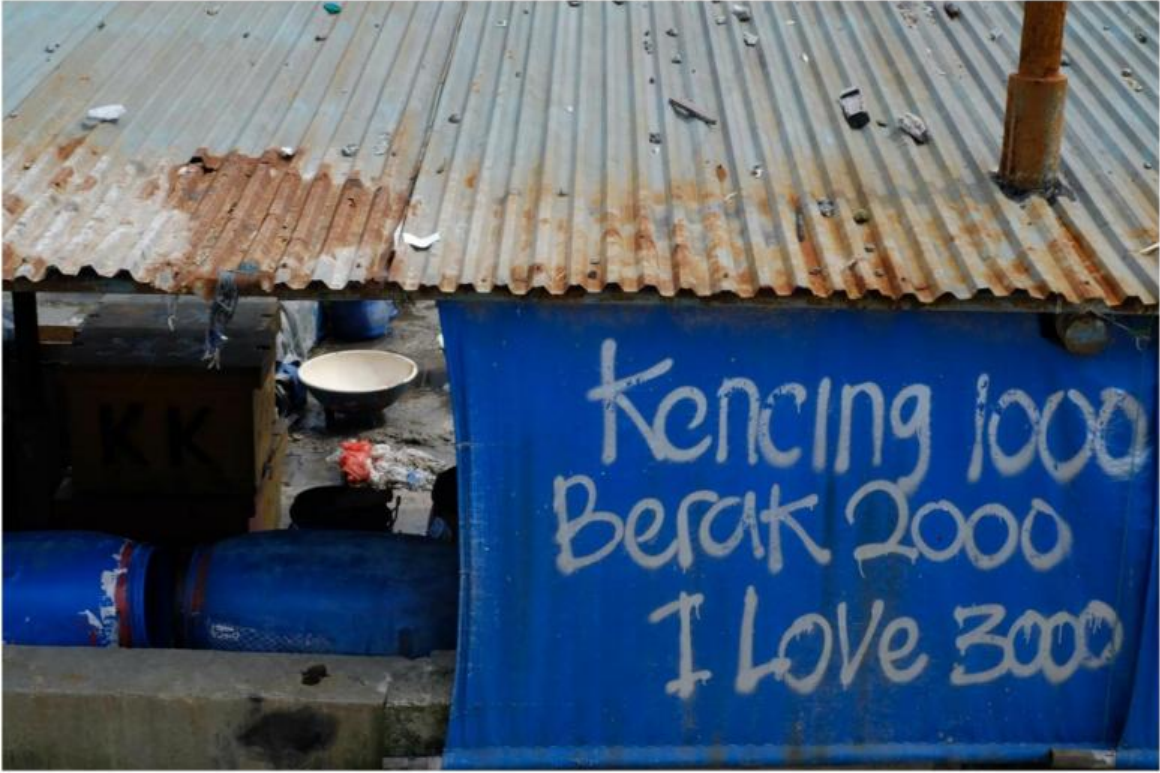 KK
Kencing 1000
Berak 2000
I Love 3000